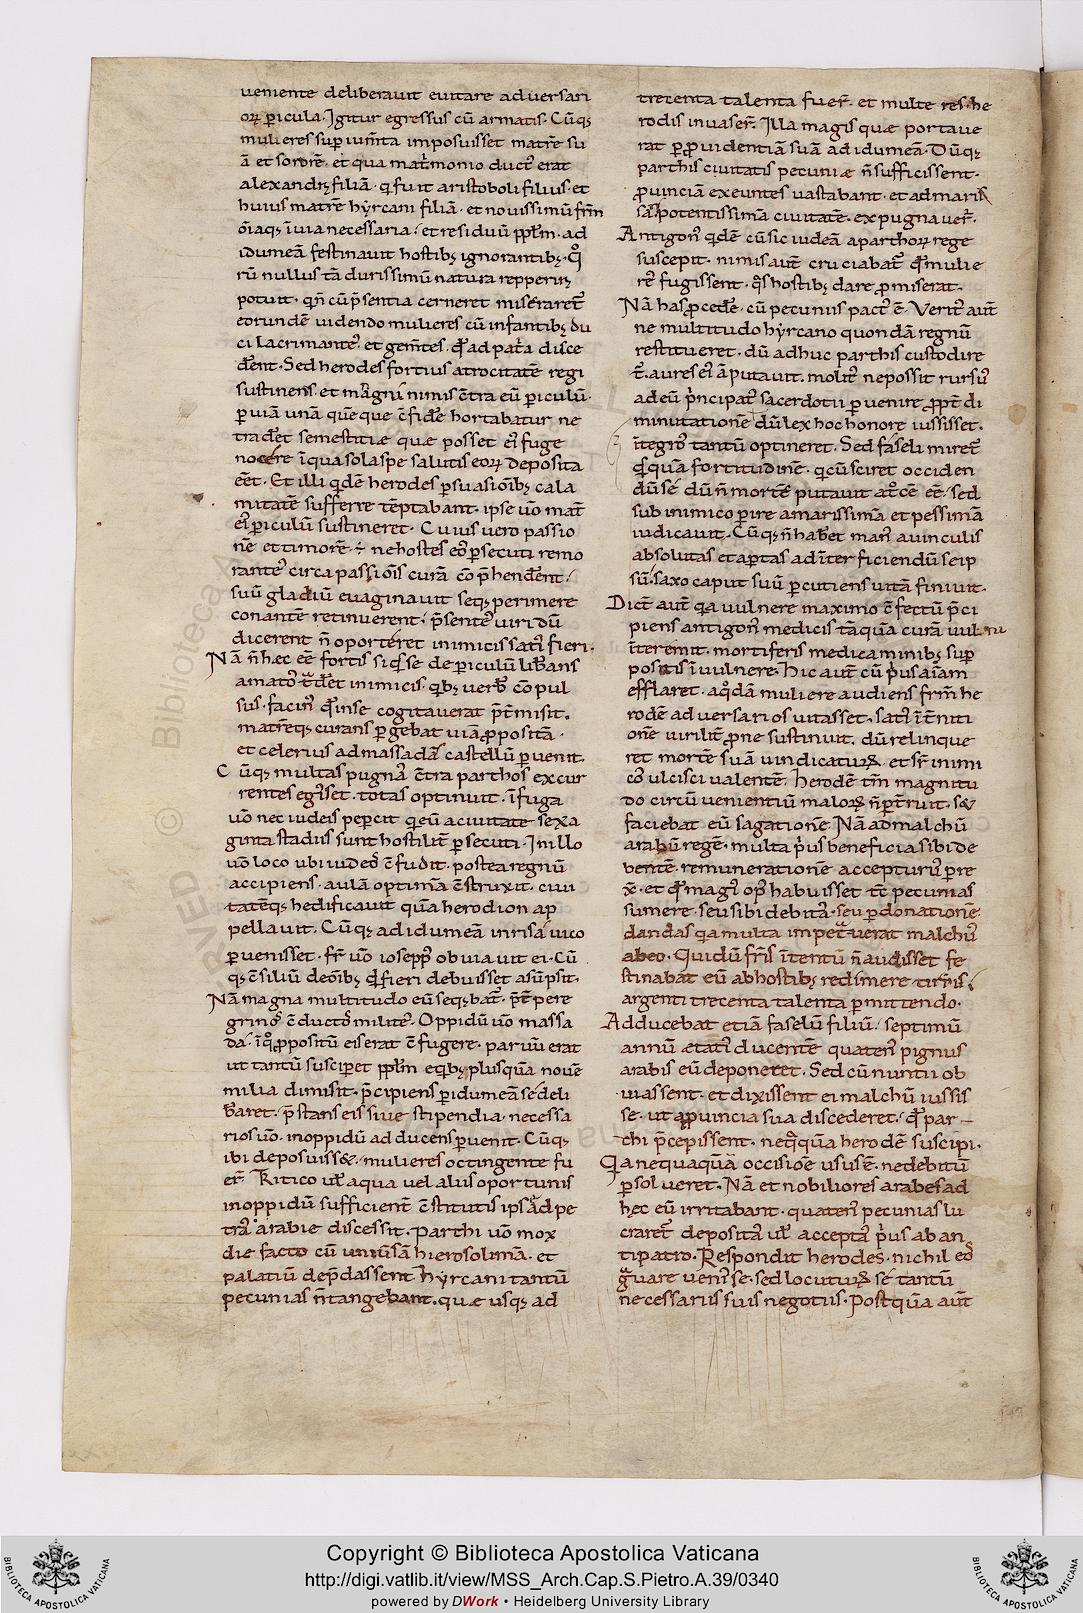 ueniente deliberauit euitare aduersari
oꝝ ꝑicula. Igitur egressus cū armatis. Cūqꝫ
mulieres suꝑ iumīta imposuisset matrē su
ā et sororē. et qua mat̄monio duct᾽ erat
alexandrꝫ filiā. q̄ fuit aristoboli filius. et
huius matrē hyrcani filiā. et nouissimū frm̄
oīaqꝫ ī uia necessaria. et residuū ppl̄m. ad
idumeā festinauit hostibꝫ ignorantibꝫ.
rū nullus tā durissimū natura repperirꝫ
potuit. qn̄ cū p̄sentia cerneret misēraret᷑
eorundē uidendo mulieres cū infantibꝫ du
ci lacrimante᾽ et gem̄tes. qd̄ ad pat̄a disce
dēnt. Sed herodes fortius atrocitatē regi
sustinens. et magni nimis c̄tra eū ꝑiculū.
ꝑ uiā unā quēque c̄fidē hortabatur ne
tradēt semestitiæ quæ posset ei᾽ fuge
nocére īqua sola spe salutis eoꝝ deposita
eēt. Et illi qdē herodes ꝑsuasionibꝫ cala
mitatē sufferre tēptabant. ipse uo mat̄
ei᾽ ꝑiculū sustineret. Cuius uero passio
nē et timorē. ÷ ne hostes eos ꝑsecuti remo
rante᾽ circa passiōis curā cōp̄hendent.
suū gladiū euaginauit seqꝫ perimere
conantē retinuerent. p̄sente᾽ uiri dū
dicerent n̄ oportéret inimicis satis fieri.
Nā n̄ hec eē fortis si qd̄ se de ꝑiculū libans
amato᾽ tdēt inimicis. qbꝫ uerb᾽ cōpul
sus. facin᾽ qd̄ inse cogitauerat p̄t̄misit.
matrēqꝫ curans ꝑgebat uiā ꝓposita.
et celerius ad massadā castellū ꝑuenit.
Cūqꝫ multas pugnas c̄tra parthos excur
rentes egisset. totas optinuit. ī fuga
uō nec iudeis peꝑcit qi eū a ciuitate sexa
ginta stadiis sunt hostilit̄ ꝑsecuti. In illo
uō loco ubi iudeos c̄fudit. postea regnū
accipiens. aulā optimā c̄struxit. ciui
tatēqꝫ hedificauit quā herodion ap
pellauit. Cūqꝫ ad idumeā inrisā uico
ꝑuenisset. fr̄ uō iosepp᾽ obuiauit ei. Cū
qꝫ c̄siliū deoībꝫ qd̄ fieri debuisset asūpsit.
Nā magna multitudo eū seqꝫbat᷑. p̄t̄ pere
grinos c̄ductos milites. Oppidū uō massa
da. ī qꝰ ꝓpositū ei erat c̄fugere. paruū erat
ut tantū susciꝑet ppl̄m eqꝫ plusquā nouē
milia dimisit. p̄cipiens ꝑidumeā se deli
baret. p̄stans eis siue stipendia. necessa
rios uō. inoppidū adducens ꝑuenit. Cūqꝫ
ibi deposuiss&. mulieres octingente fu
er̄. Tritico ul̄ aqua uel aliis oportunis
inoppidū sufficient᾽ c̄stitutis ips ad pe
trā arabie discessit. Parthi uō mox
die facto cū uniūsā hierosolimā. et
palatiū dep̄dassent hyrcani tantū
pecunias n̄ tangebant. quæ usqꝫ ad
trecenta talenta fuer̄. et multe res he
rodis inuaser̄. Illa magis quæ portaue
rat ꝑ ꝓuidentiā suā ad idumeā. Dūqꝫ
parthis ciuitatis pecuniæ n̄ sufficissent.
ꝓuinciā exeuntes uastabant. et ad maris
sā potentissimā ciuitatē. expugnauer̄.
Antigon᾽ qdē cū sic iudeā a parthoꝝ rege
suscepit. nimis aut̄ cruciabat᷑ qd̄ mulie
rē fugissent. qs hostibꝫ dare ꝓmiserat.
Nā has ꝓcedē. cū pecuniis pact᾽ ē. Verit᾽ aut̄
ne multitudo hyrcano quondā regnū
restitueret. dū adhuc parthis custodire
t̄. aures ei᾽ āputauit. molit᾽ ne possit rursu᾽
ad eū p̄ncipat᾽ sacerdotii ꝑuenire ꝓpt̄ di
minutationē dū lex hoc honore iussisset.
ītegros tantū optineret. Sed faseli miret᷑
qsquā fortitudinē. qi cū sciret occiden
dū sé dū n̄ mortē putauit at᷑cē eē. sed
sub inimico ꝑire amarissimā et pessimā
iudicauit. Cūqꝫ n̄ habet man᾽ a uinculis
absolutas et aꝑtas ad īterficiendū seip
sū. saxo caput suū ꝑcutiens uitā finiuit.
Dict᷑ aut̄ qa uulnere maximo c̄fectū p̄ci
piens antigon᾽ medicis tāquā curā uul nu
īteremit. mortiferis medicaminibꝫ suꝑ
positis ī uulnere. Hic aut̄ cū p̄us aīam
efflaret. a qdā muliere audiens frm̄ he
rodē aduersarios uitasset. satis ī t̄niti
onē uirilit̄ ꝓne sustinuit. dū relinque
ret mortē suā uindicaturꝫ. et sr̄ inimi
cos ulcisci ualentē. Herodē tm̄ magnitu
do circū uenientiū maloꝝ n̄ ꝑt̄ruit. s&
faciebat eū sagationē. Nā ad malchū
arabū regē. multa p̄us beneficia sibi de
bentē. remunerationē accepturu᾽ ꝑre
x̄. et qd̄ magis op᾽ habuisset tc̄ pecunias
sumere. seu sibi debitā. seu ꝑ donationē
dandas qa multa impetuerat malchu᾽
ab eo. Qui dū fris ītentū n̄ audisset fe
stinabat eū ab hostibꝫ redimere.
argenti trecenta talenta ꝑmittendo.
Adducebat etiā faselū filiū. septimū
annū etatis ducentē quaten᾽ pignus
arabis eū deponeret. Sed cū nuntii ob
uiassent. et dixissent ei malchū iussis
se. ut a ꝓuincia sua discederet. qd̄ par
thi p̄cepissent. neqꝗquā herodē suscipi.
Qa nequaquā occisiōe usus ē. ne debitū
ꝑsolueret. Nā et nobiliores arabes ad
hęc eū irritabant. quaten᾽ pecunias lu
craret᷑ depositā ul̄ acceptā p̄us ab an
tipatro. Respondit herodes. nichil eos
guare uenisse. sed locuturꝫ sé tantū
necessariis suis negotiis. Postquā aut̄
Copyright © Biblioteca Apostolica Vaticana
http://digi.vatlib.it/view/MSS_Arch.Cap.S.Pietro.A.39/0340
powered by DWork • Heidelberg University Library
BIBLIOTECA APOSTOLICA VATICANA
BIBLIOTECA APOSTOLICA VATICANA